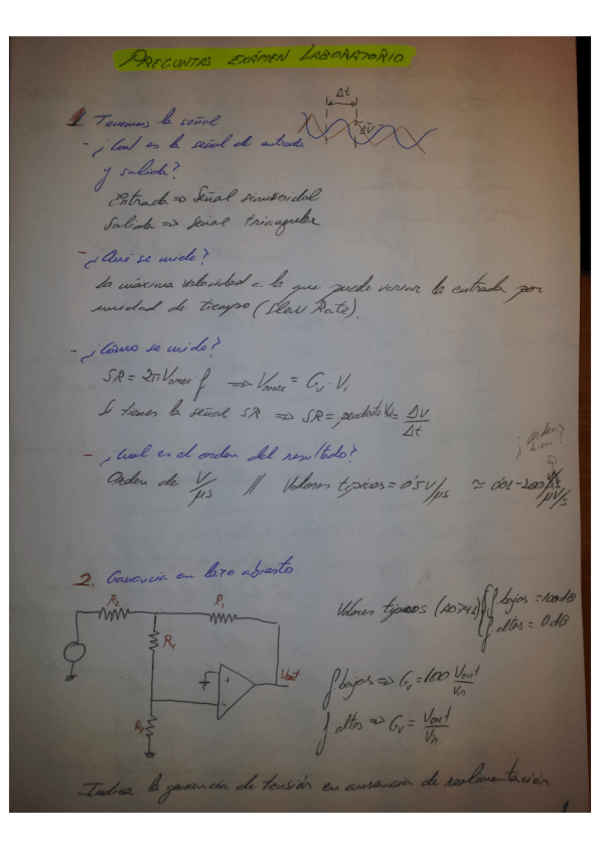 PREGUNTAS EXÁMEN LABORATORIO
Δt
ΔV
1. Tenemos la señal
- ¿Cual es la señal de entrada
y salida?
Entrada => Señal sinusoidal
Salida => señal triangular
- ¿Qué se mide?
La máxima velocidad a la que puede variar la entrada por
unidad de tiempo (Slew Rate).
- ¿Cómo se mide?
SR = 2π Vomax f => Vomax = Gv · Vi
Si tienes la señal SR => SR = pendiente = ΔV/Δt
- ¿Cual es el orden del resultado?
¿orden?
Orden de V/μs // Valores típicos = 0'5 V/μs ≃ 0'01-200
2. Ganancia en lazo abierto
R2 R1
R4
Vout
+
-
Valores típicos { f bajas = 100 dB
f altas = 0 dB
f bajas => Gv = 100 Vout/Vin
f altas => Gv = Vout/Vin
Indica la ganancia de tensión en ausencia de realimentación
1